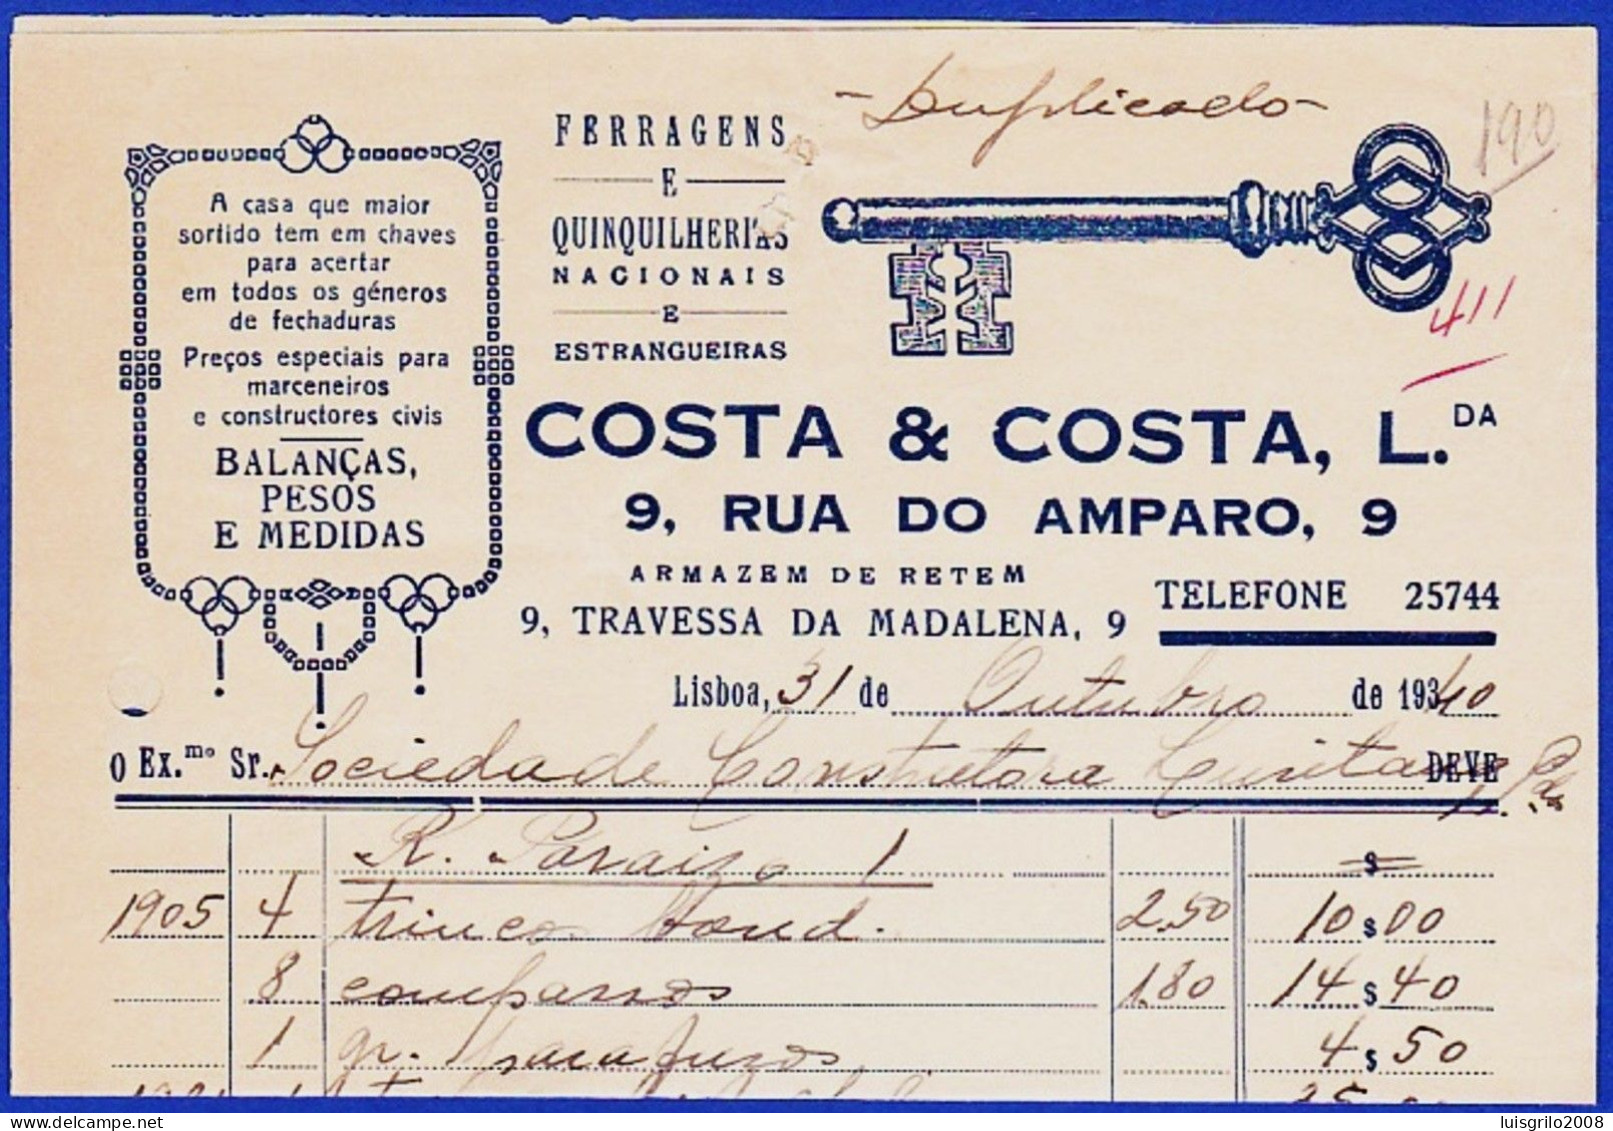 - Duplicado -
190
A casa que maior
sortido tem em chaves
para acertar
em todos os géneros
de fechaduras
Preços especiais para
marceneiros
e constructores civis
BALANÇAS,
PESOS
E MEDIDAS
FERRAGENS
E
QUINQUILHERIAS
NACIONAIS
E
ESTRANGUEIRAS
411
COSTA & COSTA, L.DA
9, RUA DO AMPARO, 9
ARMAZEM DE RETEM
9, TRAVESSA DA MADALENA, 9
TELEFONE 25744
Lisboa, 31 de Outubro de 1940
O Ex.mo Sr. Sociedade Construtora DEVE
R. Paraizo 1 $
1905 4 trincos 2.50 10$00
8 compassos 1.80 14$40
1 gr. parafuzos 4$50
luisgrilo2008